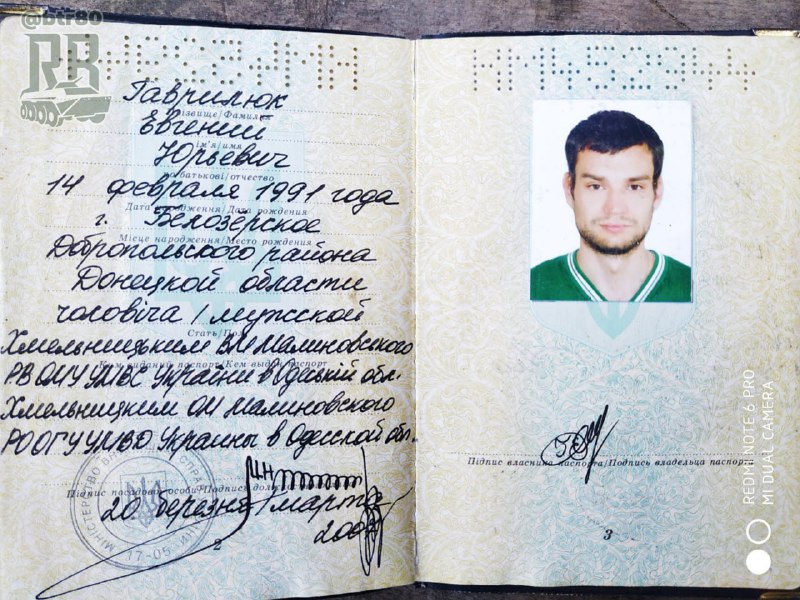 @btr80
RB
Гаврилюк
Прізвище/Фамилия
Евгений
ім'я/имя
Юрьевич
по батькові/отчество
14 февраля 1991 года
Дата народження/Дата рождения
г. Белозёрское
Місце народження/Место рождения
Добропольского района
Донецкой области
чоловіча / мужской
Стать/Пол
Хмельницьким ВМ Малиновського
Ким виданий паспорт/Кем выдан паспорт
РВ ОМУ УМВС України в Одеській обл.
Хмельницким ОМ Малиновского
РО ОГУ УМВД Украины в Одесской обл.
Підпис посадової особи/Подпись
20 березня / марта
МІНІСТЕРСТВО
17-05
2
НМ452944
Підпис власника паспорта/Подпись владельца паспорта
3
REDMI NOTE 6 PRO
MI DUAL CAMERA